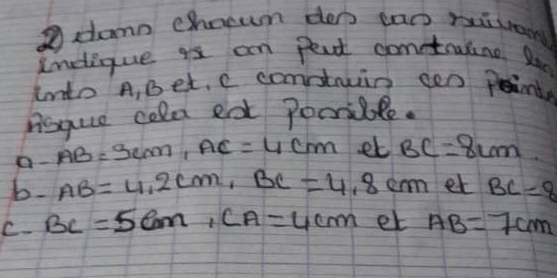 2) dans chacun des cas suivants
indique si on peut construire les
ints A, B et. C construis ces Points
risque cela est Possible.
a- AB = 3cm, AC = 4cm et BC = 8cm.
b- AB = 4,2cm, BC = 4,8cm et BC = 8
C- BC = 5cm, CA = 4cm et AB = 7cm